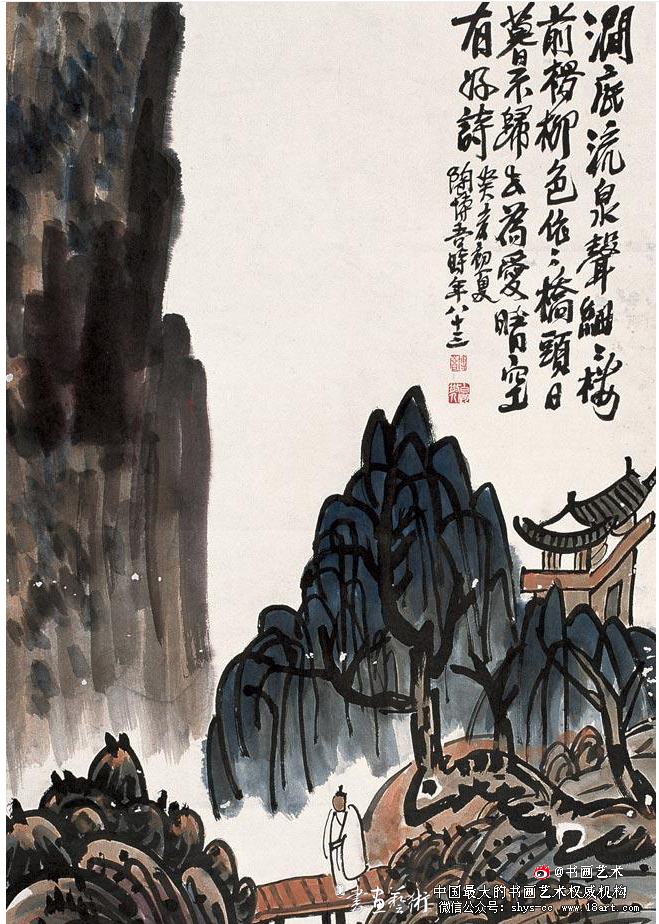 澗底流泉聲細〻樓
前楊柳色依〻橋頭日
暮不歸去為愛晴空
有好詩
癸亥初夏
陶博吾時年八十三
@书画艺术
書畫藝術
中国最大的书画艺术权威机构
微信公众号: shys-cc www.18art.com